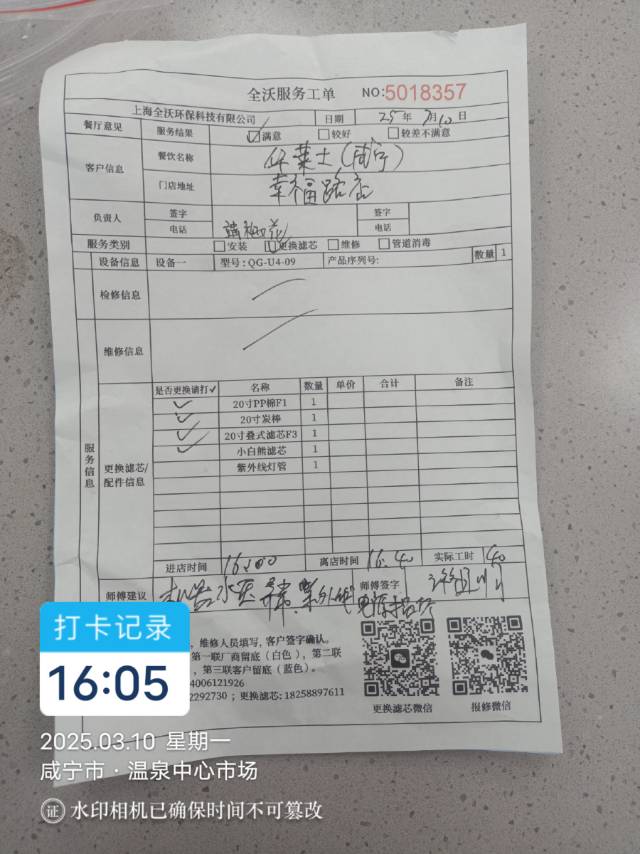 全沃服务工单 NO:5018357
上海全沃环保科技有限公司 日期 25年3月10日
餐厅意见 服务结果 ☑满意 □较好 □较差不满意
客户信息 餐饮名称 华莱士(咸宁)
门店地址 幸福路店
负责人 签字 签字
电话 电话
服务类别 □安装 ☑更换滤芯 □维修 □管道消毒
设备信息 设备一 型号:QG-U4-09 产品序列号: 数量 1
检修信息
维修信息
服务信息
更换滤芯/配件信息
是否更换请打✓ 名称 数量 单价 合计 备注
✓ 20寸PP棉F1 1
✓ 20寸炭棒 1
✓ 20寸叠式滤芯F3 1
✓ 小白熊滤芯 1
紫外线灯管 1
进店时间 16:00 离店时间 16.40 实际工时 40
师傅建议 水 异常.紫外线 师傅签字
电源
维修人员填写,客户签字确认。
第一联厂商留底(白色)、第二联
、第三联客户留底(蓝色)。
4006121926
2292730;更换滤芯:18258897611
更换滤芯微信 报修微信
打卡记录
16:05
2025.03.10 星期一
咸宁市·温泉中心市场
证 水印相机已确保时间不可篡改